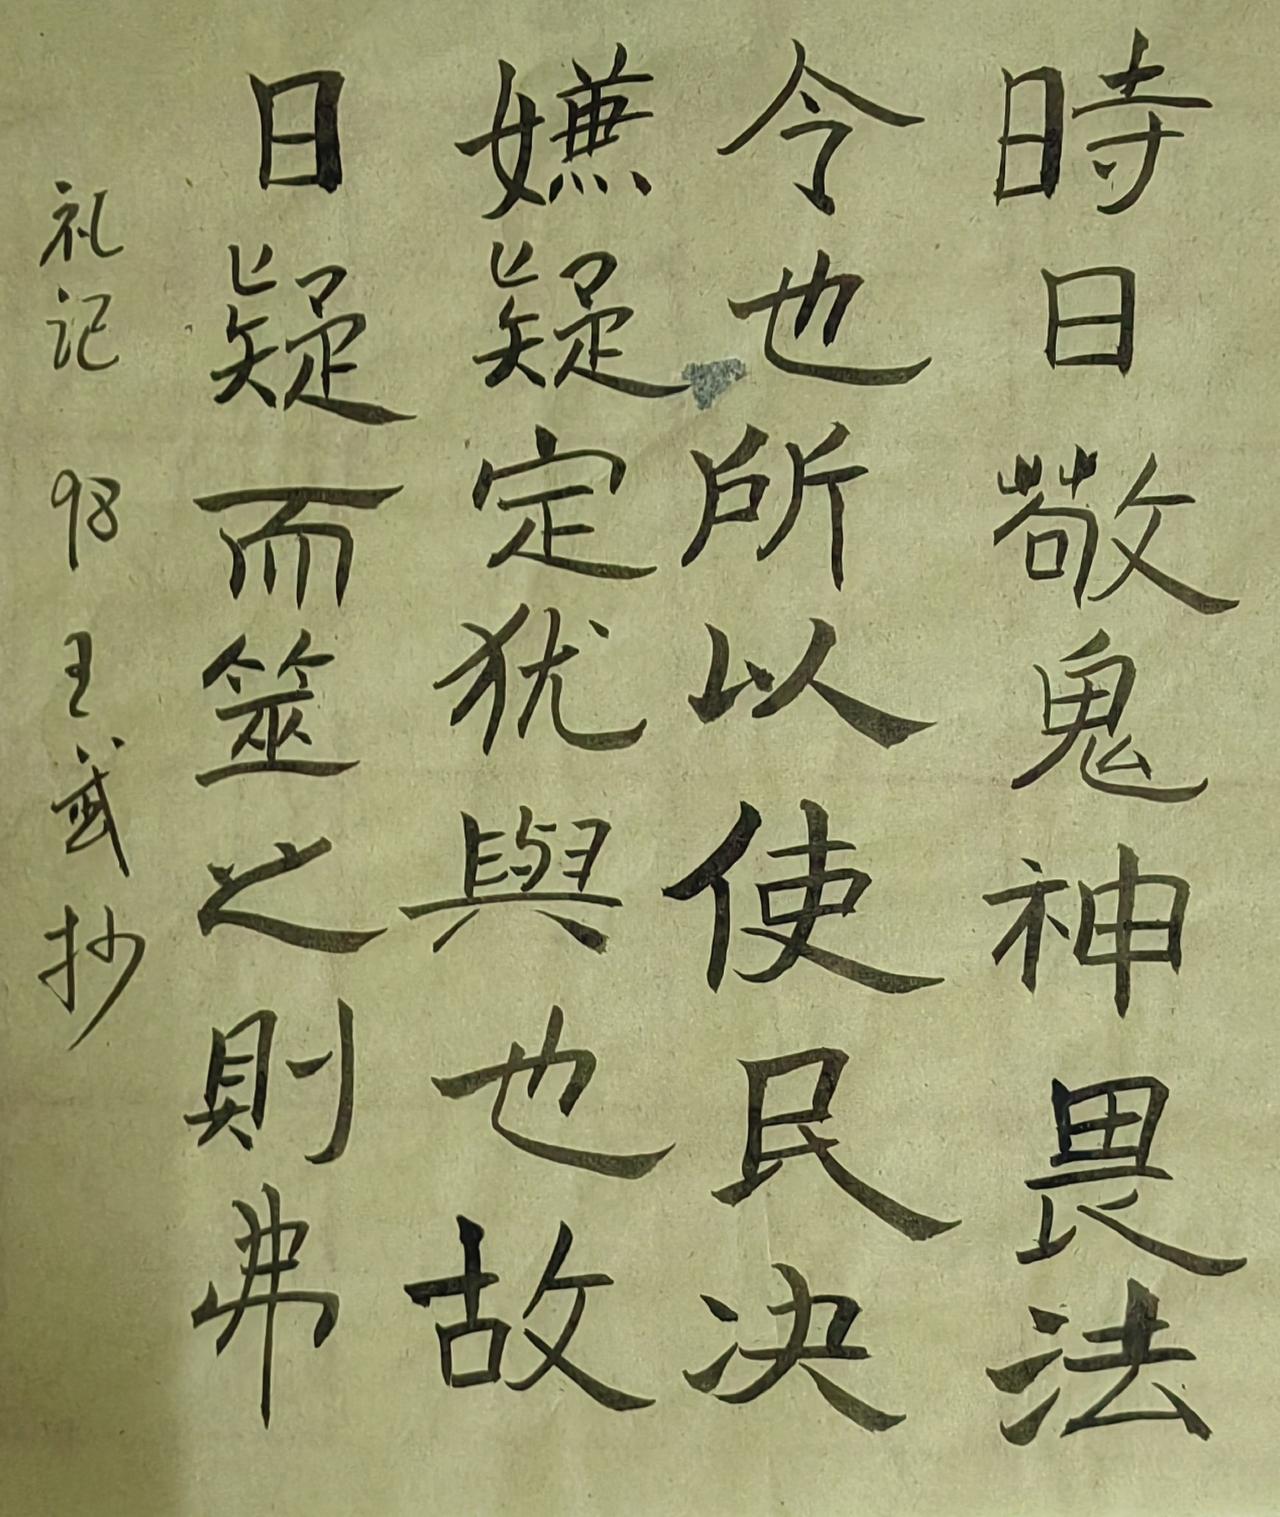 時日敬鬼神畏法
令也所以使民决
嫌疑定犹與也故
日疑而筮之則弗
礼记 98 王 抄